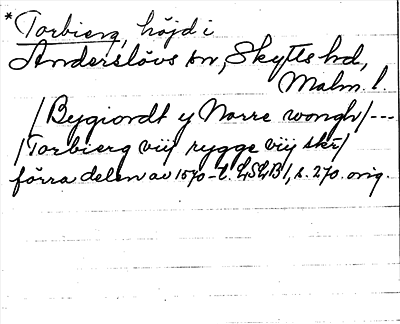 *Torbierg, höjd i
Anderslövs sn, Skytts hd,
Malm. l.
/Bygiordt y Norre wongh/---
/Torbierg viij rygge viij skr/
förra delen av 1570-t. LSLB 1, s. 270. orig.